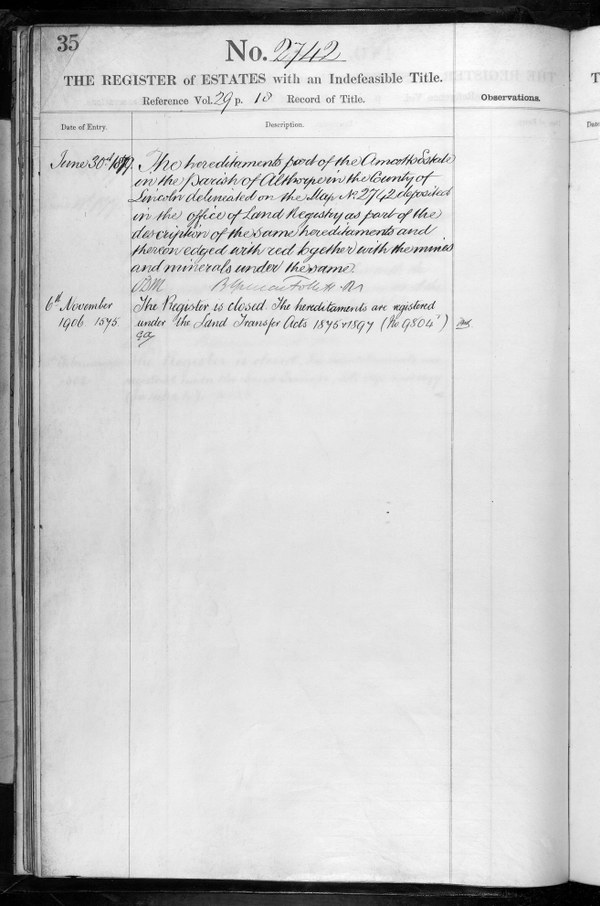 35
No. 2742
THE REGISTER of ESTATES with an Indefeasible Title.
Reference Vol. 29 p. 18 Record of Title.
Observations.
Date of Entry.
Description.
June 30th 1879. The hereditaments part of the Amcotts Estate
in the Parish of Althorpe in the County of
Lincoln delineated on the Map No. 2742 deposited
in the office of Land Registry as part of the
description of the same hereditaments and
thereon edged with red together with the mines
and minerals under the same.
6th November
1906 1575
The Register is closed. The hereditaments are registered
under the Land Transfer Acts 1875 & 1897 (No 9804)